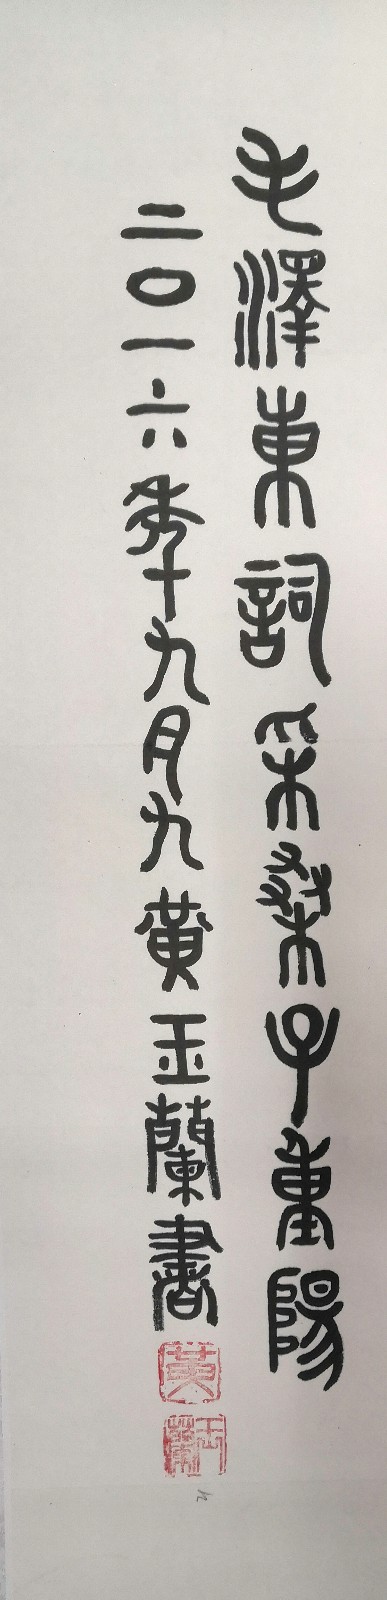 毛澤東詞采桑子重陽
二〇一六年九月九黄玉蘭書
黄
玉蘭